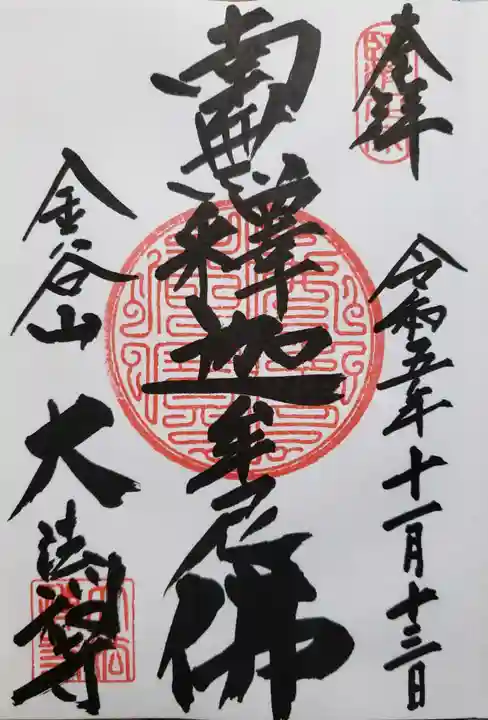 奉拝
令和五年十一月十三日
南無釋迦牟尼佛
金谷山 大法禅寺